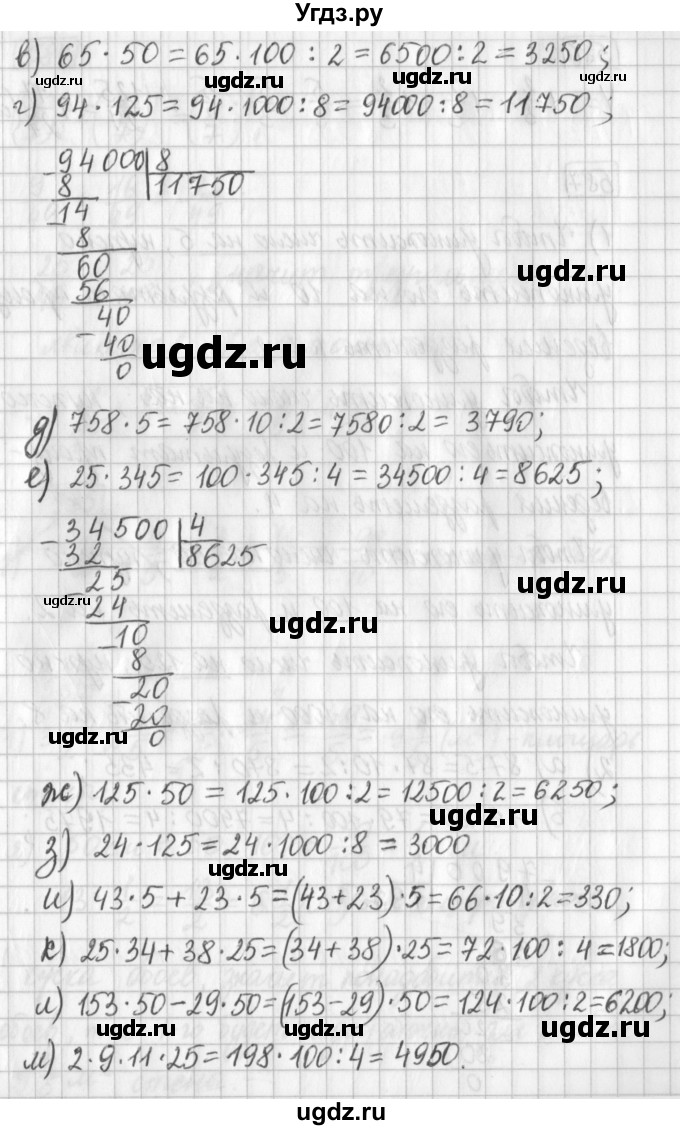 Угдз.ру
в) 65 · 50 = 65 · 100 : 2 = 6500 : 2 = 3250;
ugdz.ru ugdz.ru ugdz.ru
г) 94 · 125 = 94 · 1000 : 8 = 94000 : 8 = 11750;
94000 | 8
8 11750
14
8
60
ugdz.ru
56
40
40
ugdz.ru
0
д) 758 · 5 = 758 · 10 : 2 = 7580 : 2 = 3790;
е) 25 · 345 = 100 · 345 : 4 = 34500 : 4 = 8625;
34500 | 4
32 8625
25
ugdz.ru
ugdz.ru
24
ugdz.ru
10
8
20
20
ugdz.ru
0
ж) 125 · 50 = 125 · 100 : 2 = 12500 : 2 = 6250;
ugdz.ru
з) 24 · 125 = 24 · 1000 : 8 = 3000
ugdz.ru
и) 43 · 5 + 23 · 5 = (43 + 23) · 5 = 66 · 10 : 2 = 330;
к) 25 · 34 + 38 · 25 = (34 + 38) · 25 = 72 · 100 : 4 = 1800;
л) 153 · 50 - 29 · 50 = (153 - 29) · 50 = 124 · 100 : 2 = 6200;
ugdz.ru ugdz.ru ugdz.ru
м) 2 · 9 · 11 · 25 = 198 · 100 : 4 = 4950.
ugdz.ru